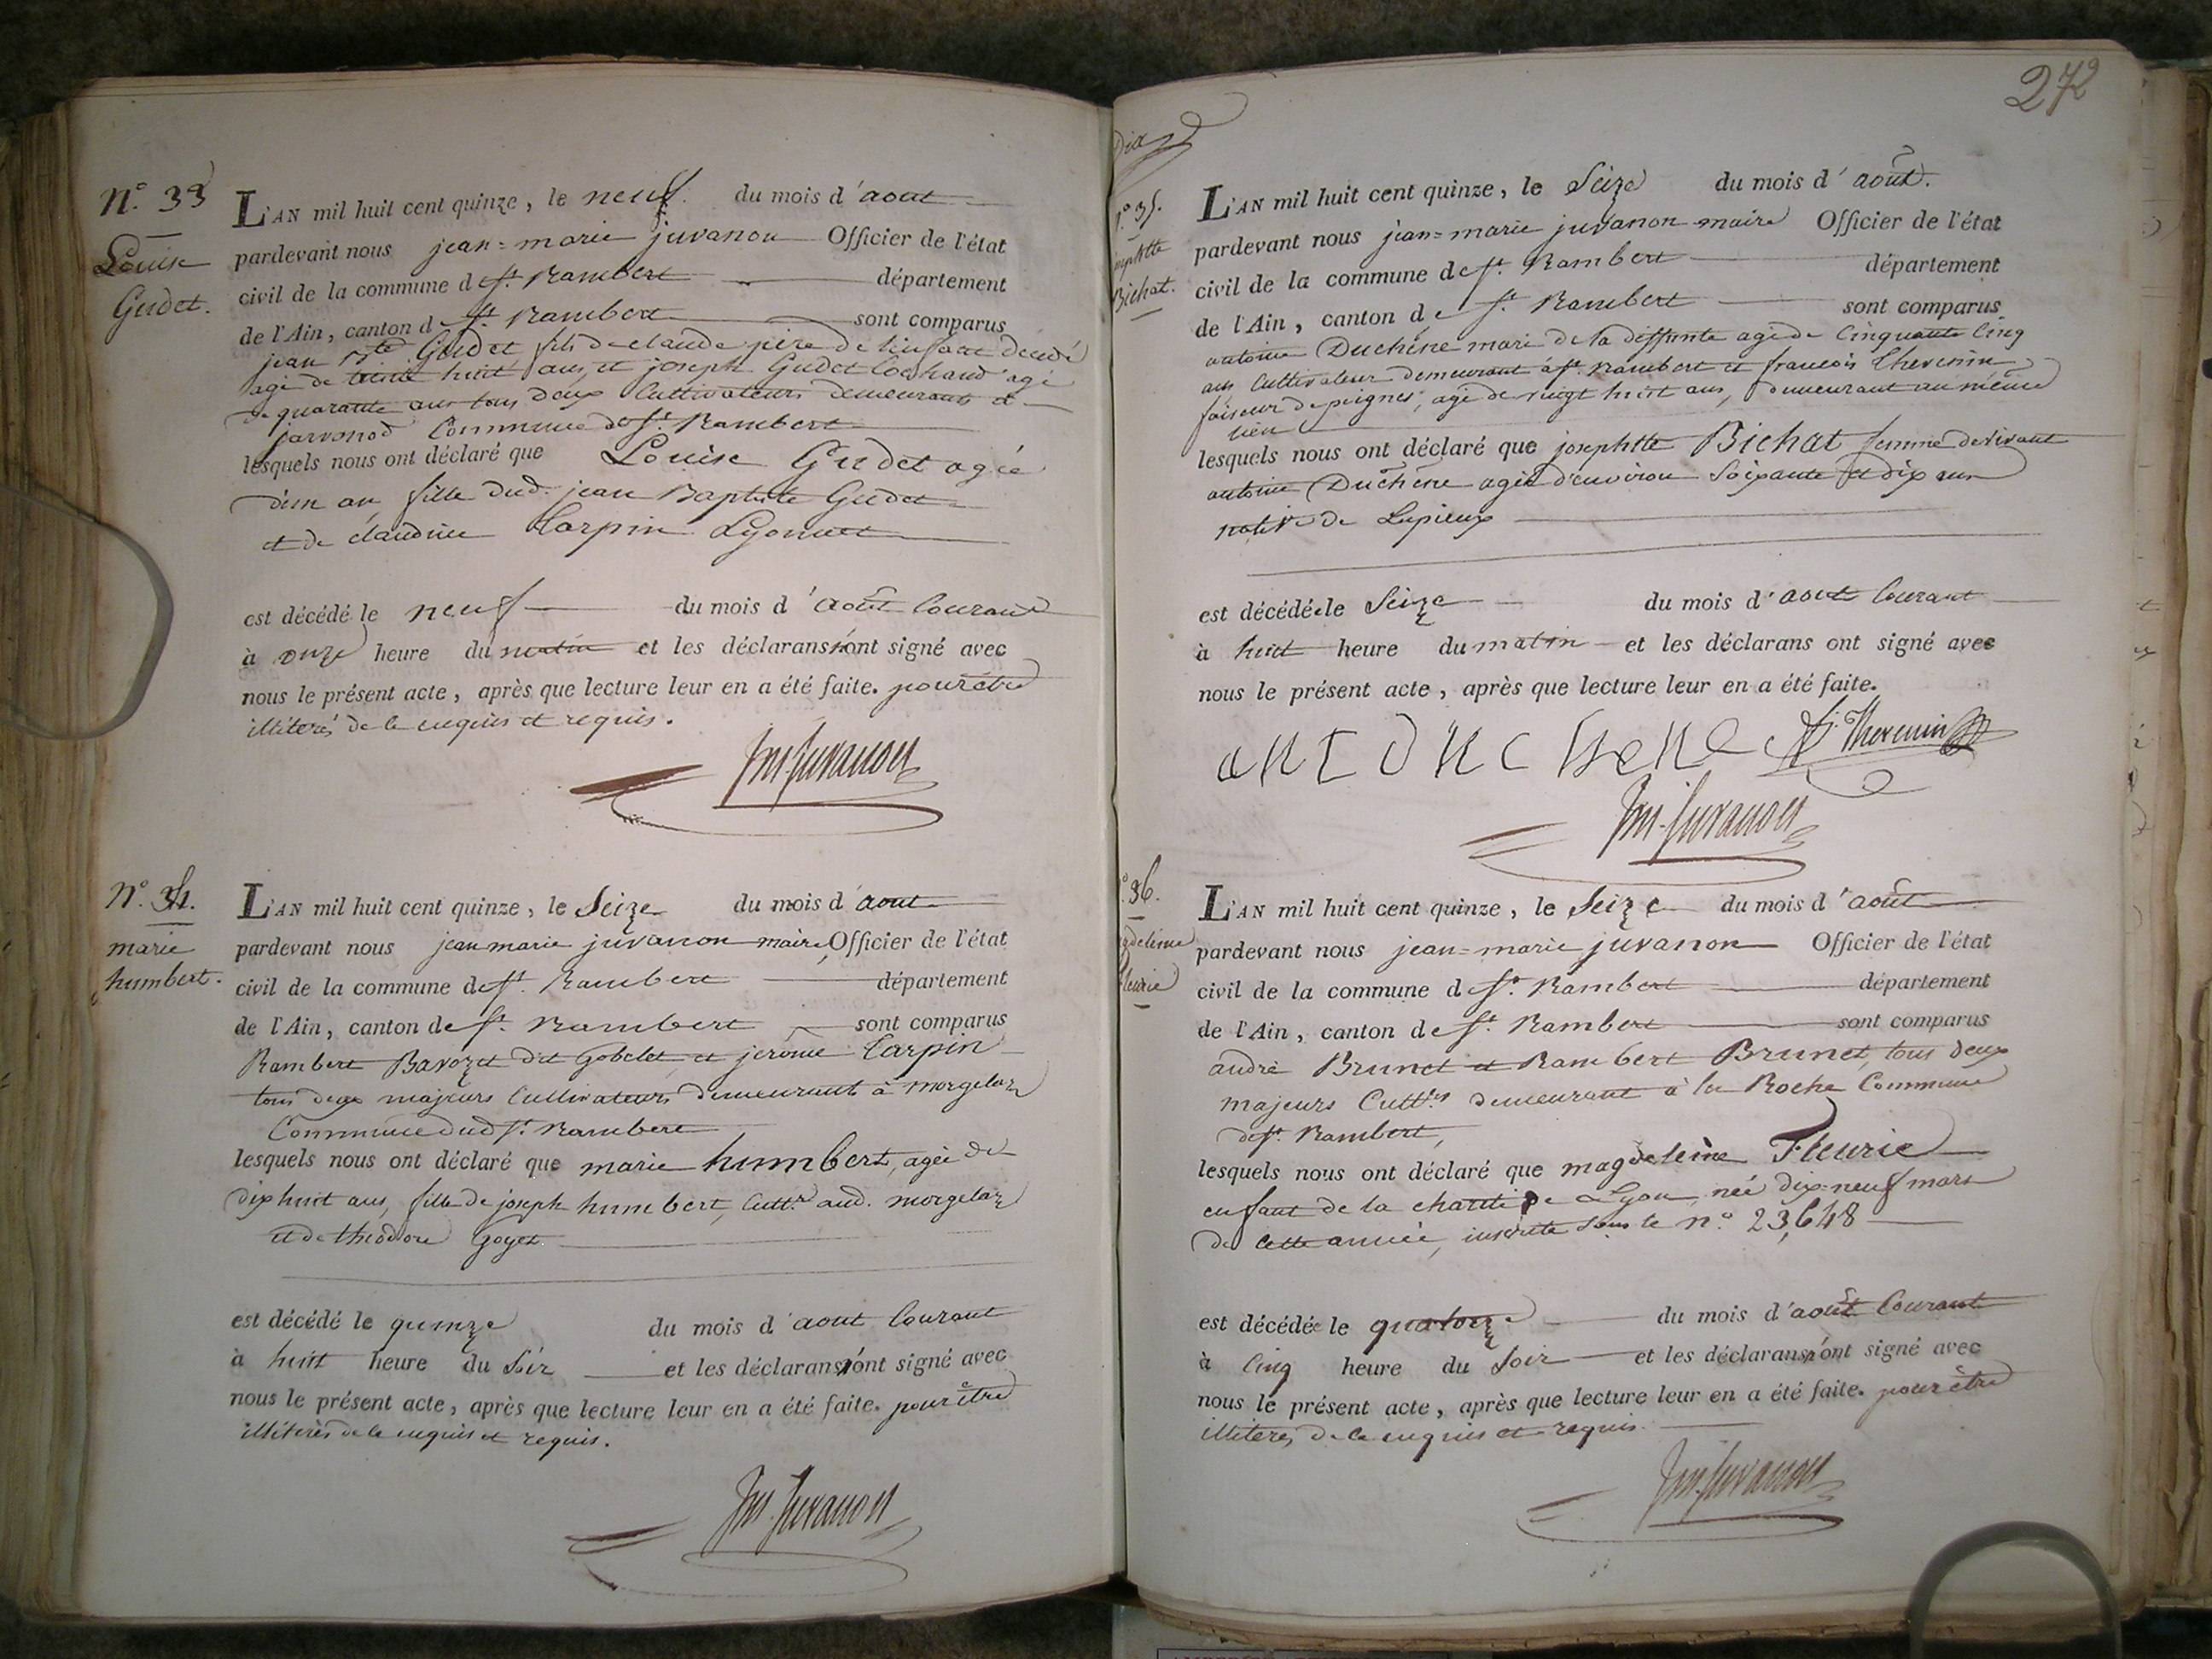 N.° 33
Louise
Gudet.
L'AN mil huit cent quinze, le neuf du mois d'aout
pardevant nous jean=marie juvanon Officier de l'état
civil de la commune de St. Rambert département
de l'Ain, canton de St. Rambert sont comparus
jean Bte Gudet fils de claude père de l'enfant décédé
agé de trente huit ans, et joseph Gudet agé
de quarante ans tous deux Cultivateurs demeurants à
javornod Commune de St. Rambert
lesquels nous ont déclaré que Louise Gudet agée
d'un an fille dud. jean Baptiste Gudet
et de claudine Carpin Lyonnet
est décédé le neuf du mois d'août Courant
à onze heure du matin et les déclarans n'ont signé avec
nous le présent acte, après que lecture leur en a été faite. pour être
illiterés de ce enquis et requis.
Jm. Juvanon
N.° 34.
marie
humbert.
L'AN mil huit cent quinze, le Seize du mois d'aout
pardevant nous jean marie juvanon maire, Officier de l'état
civil de la commune de St. Rambert département
de l'Ain, canton de St. Rambert sont comparus
Rambert Bavozet dit Gobelet, et jerôme Carpin
tous deux majeurs Cultivateurs demeurants à morgelaz
Commune dud St. Rambert
lesquels nous ont déclaré que marie humbert, agée de
dix huit ans, fille de joseph humbert, Cultr. aud. morgelaz
et de theodore Goyet.
est décédé le quinze du mois d'aout Courant
à huit heure du Soir et les déclarans n'ont signé avec
nous le présent acte, après que lecture leur en a été faite. pour être
illiterés de ce enquis et requis.
Jm. Juvanon
272
Dix
n.° 35.
josephtte
Bichat.
L'AN mil huit cent quinze, le Seize du mois d'août.
pardevant nous jean=marie juvanon maire Officier de l'état
civil de la commune de St. Rambert département
de l'Ain, canton de St. Rambert sont comparus
antoine Duchêne mari de la deffunte agé de Cinquante Cinq
ans Cultivateur demeurant à St. Rambert et francois Thevenin
faiseur de peignes, agé de vingt huit ans, demeurant au même
lieu
lesquels nous ont déclaré que josephtte Bichat femme de vivant
antoine Duchêne agée d'environ Soixante et dix ans
native de Lupieux
est décédée le Seize du mois d'aout Courant
à huit heure du matin et les déclarans ont signé avec
nous le présent acte, après que lecture leur en a été faite.
ant duchene f. Thevenin
Jm. Juvanon
.° 36.
gdeleine
leurie
L'AN mil huit cent quinze, le Seize du mois d'août
pardevant nous jean=marie juvanon Officier de l'état
civil de la commune de St. Rambert département
de l'Ain, canton de St. Rambert sont comparus
andré Brunet et Rambert Brunet, tous deux
majeurs Cultrs. demeurant à la Roche Commune
de St. Rambert,
lesquels nous ont déclaré que magdeleine Fleurie
enfant de la charité de Lyon, née dix-neuf mars
de cette année, inscrite sous le n.° 23,648
est décédée le quatorze du mois d'août Courant
à Cinq heure du Soir et les déclarans n'ont signé avec
nous le présent acte, après que lecture leur en a été faite. pour être
illiterés de ce enquis et requis.
Jm. Juvanon